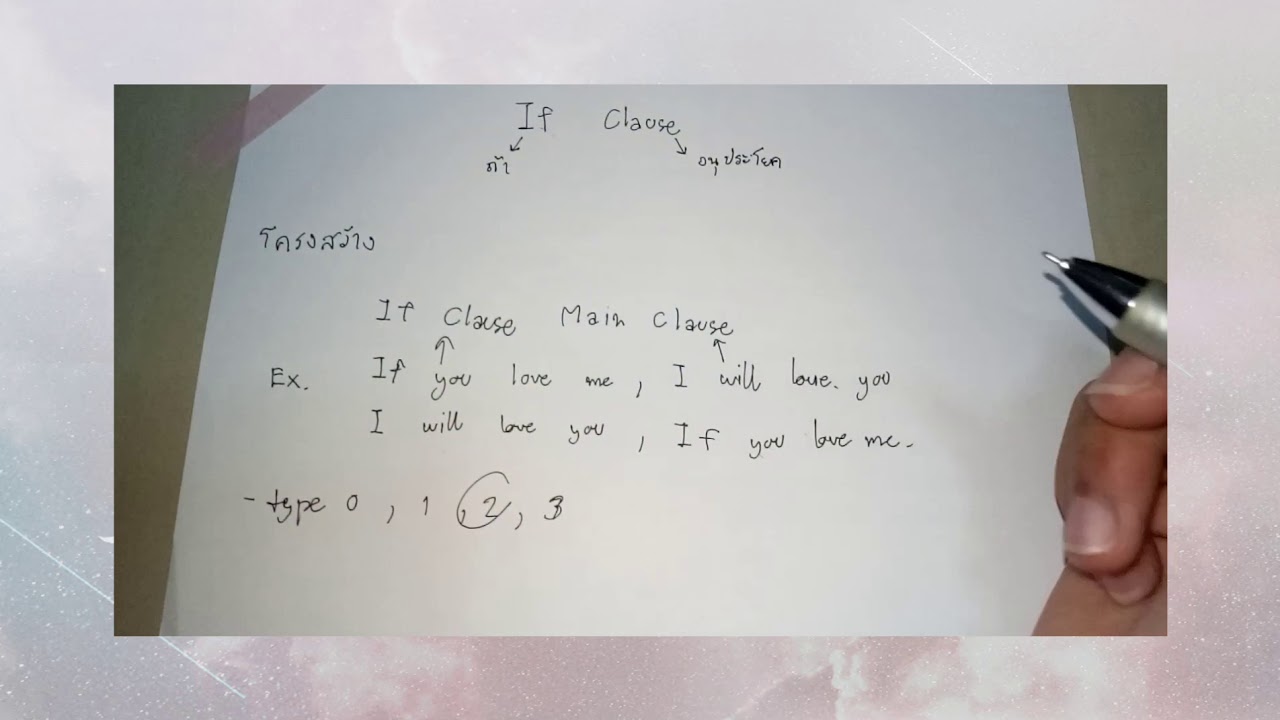 If Clause
ถ้า อนุประโยค
โครงสร้าง
If Clause Main Clause
Ex. If you love me , I will love. you
I will love you , If you love me.
- type 0 , 1 , 2 , 3